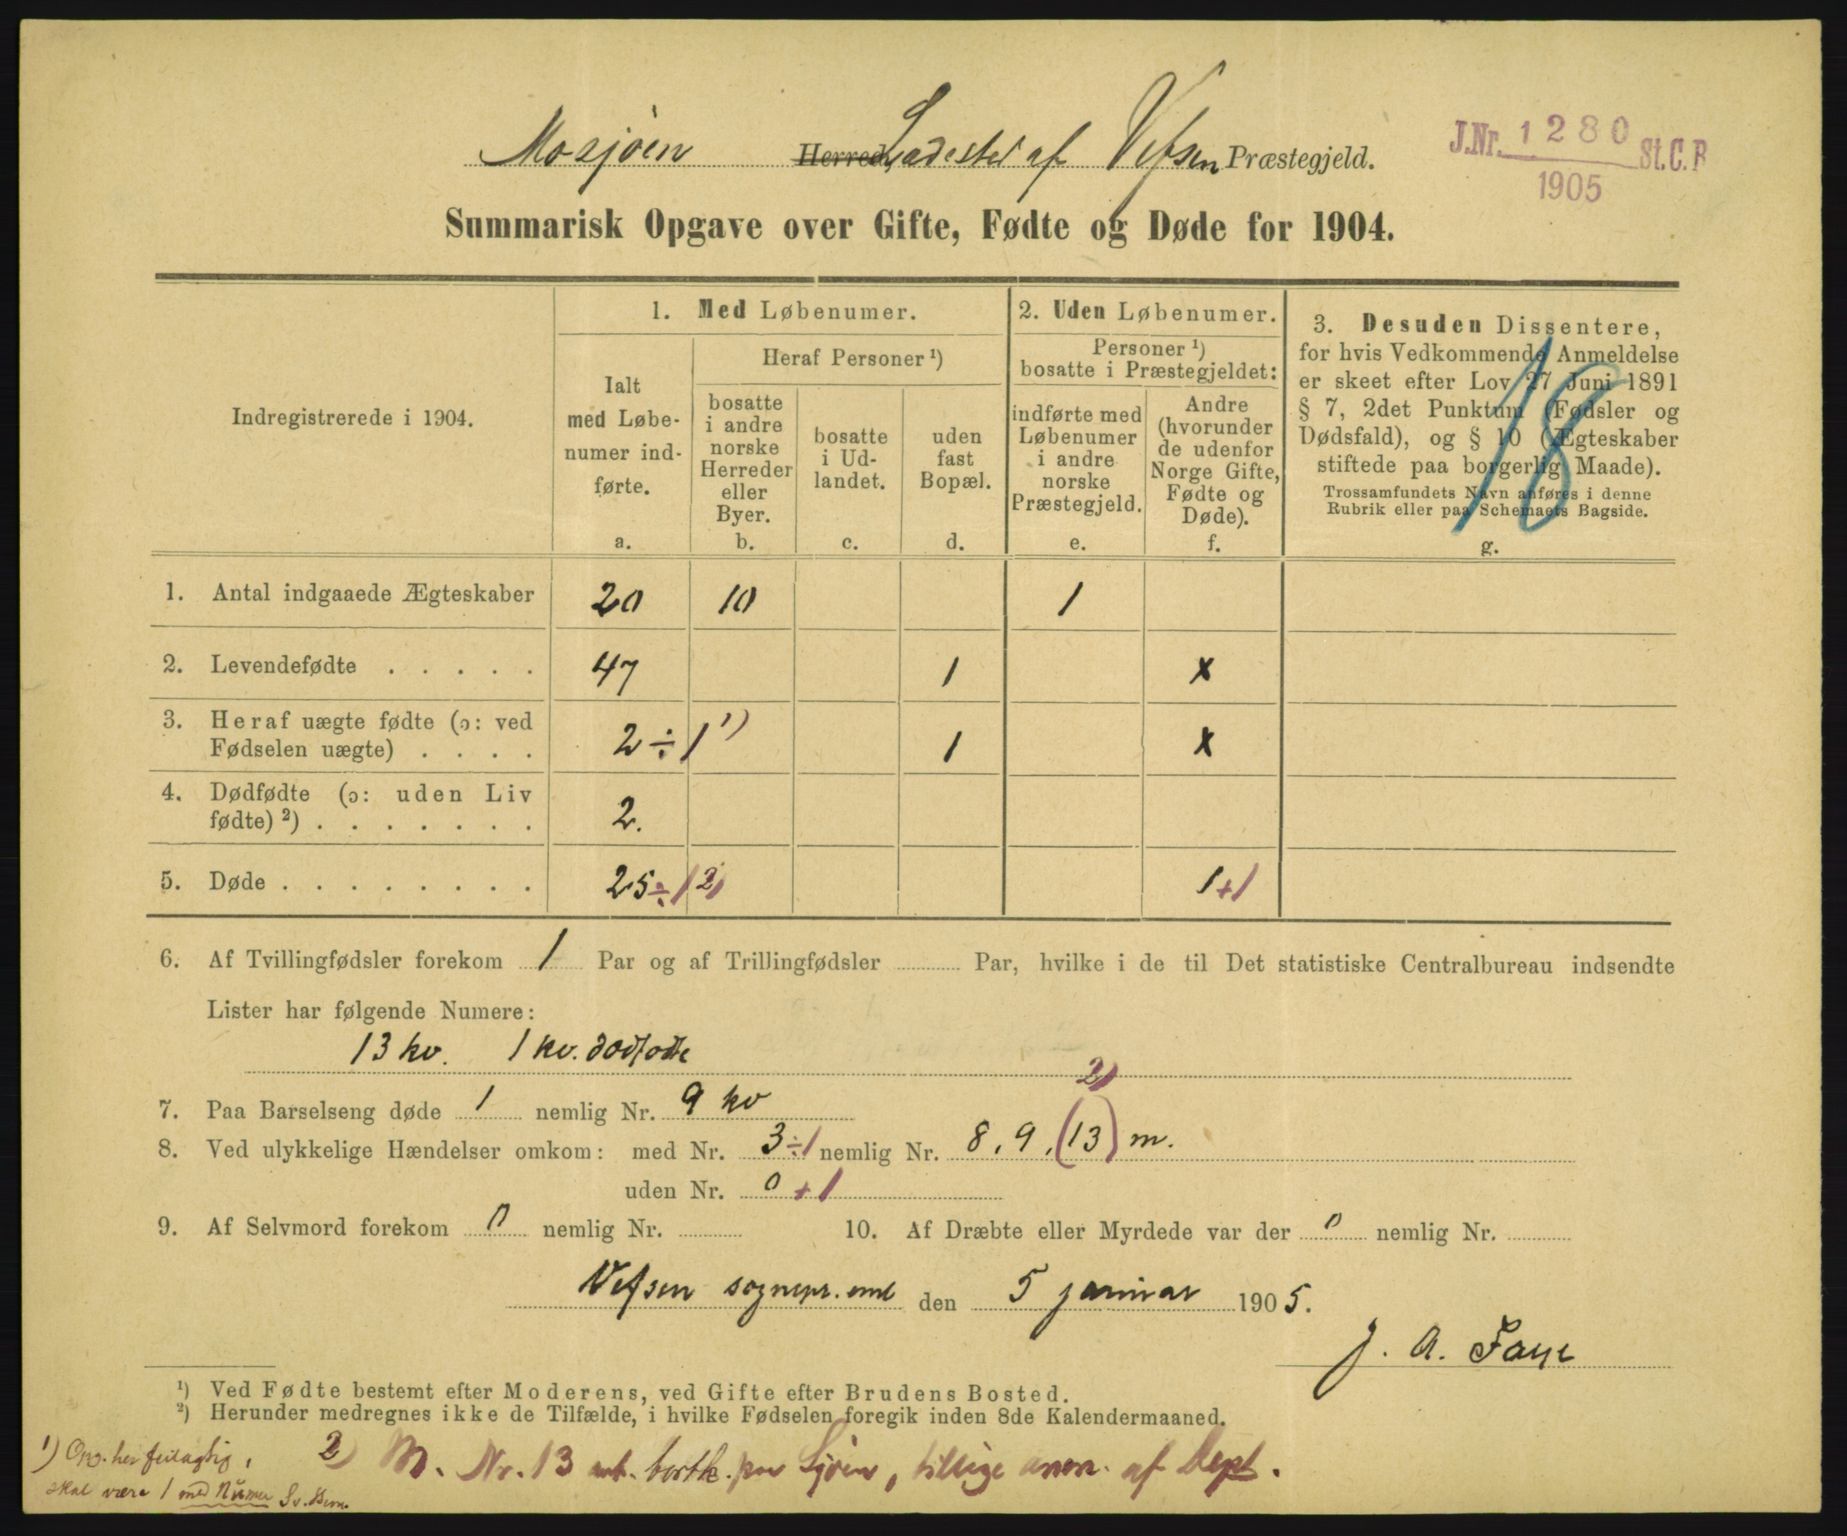 Mosjøen Herred, Ladested af Vefsen Præstegjeld.
J.Nr. 1280 St.C.B
1905
Summarisk Opgave over Gifte, Fødte og Døde for 1904.
Indregistrerede i 1904.
1. Med Løbenumer.
Ialt med Løbe-
numer ind-
førte.
a.
Heraf Personer ¹)
bosatte
i andre
norske
Herreder
eller
Byer.
b.
bosatte
i Ud-
landet.
c.
uden
fast
Bopæl.
d.
2. Uden Løbenumer.
Personer ¹)
bosatte i Præstegjeldet:
indførte med
Løbenumer
i andre
norske
Præstegjeld.
e.
Andre
(hvorunder
de udenfor
Norge Gifte,
Fødte og
Døde).
f.
3. Desuden Dissentere,
for hvis Vedkommende Anmeldelse
er skeet efter Lov 27 Juni 1891
§ 7, 2det Punktum (Fødsler og
Dødsfald), og § 10 (Ægteskaber
stiftede paa borgerlig Maade).
Trossamfundets Navn anføres i denne
Rubrik eller paa Schemaets Bagside.
g.
18
1. Antal indgaaede Ægteskaber 20 10 1
2. Levendefødte . . . . . 47 1 x
3. Heraf uægte fødte (ɔ: ved
Fødselen uægte) . . . . 2 ÷ 1 ¹) 1 x
4. Dødfødte (ɔ: uden Liv
fødte) ²) . . . . . . . 2.
5. Døde . . . . . . . . 25 ÷ 1 2) 1 + 1
6. Af Tvillingfødsler forekom 1 Par og af Trillingfødsler Par, hvilke i de til Det statistiske Centralbureau indsendte
Lister har følgende Numere:
13 kv. 1 kv. dødfødte
7. Paa Barselseng døde 1 nemlig Nr. 9 kv
2)
8. Ved ulykkelige Hændelser omkom: med Nr. 3 ÷ 1 nemlig Nr. 8, 9, (13) m.
uden Nr. 0 + 1
9. Af Selvmord forekom 0 nemlig Nr.
10. Af Dræbte eller Myrdede var der 0 nemlig Nr.
Vefsen sognepr.emb den 5 januar 1905.
J. A. Faye
¹) Ved Fødte bestemt efter Moderens, ved Gifte efter Brudens Bosted.
²) Herunder medregnes ikke de Tilfælde, i hvilke Fødselen foregik inden 8de Kalendermaaned.
1) Opg. her feilagtig,
skal være 1 med Numer
2) M. Nr. 13 bortk. paa Sjøen, tillige anm. af Dept.